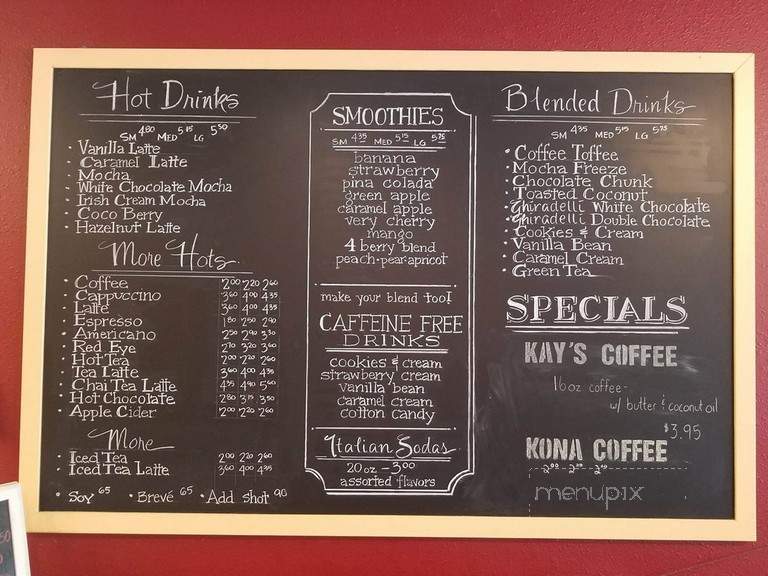 Hot Drinks
SM 4⁸⁰ MED 5¹⁵ LG 5⁵⁰
• Vanilla Latte
• Caramel Latte
• Mocha
• White Chocolate Mocha
• Irish Cream Mocha
• Coco Berry
• Hazelnut Latte
More Hots
• Coffee 2⁰⁰ 2²⁰ 2⁶⁰
• Cappuccino 3⁶⁰ 4⁰⁰ 4³⁵
• Latte 3⁶⁰ 4⁰⁰ 4³⁵
• Espresso 1⁸⁰ 2⁵⁰ 2⁹⁰
• Americano 2⁵⁰ 2⁹⁰ 3³⁰
• Red Eye 2⁷⁰ 3²⁰ 3⁶⁰
• Hot Tea 2⁰⁰ 2²⁰ 2⁶⁰
• Tea Latte 3⁶⁰ 4⁰⁰ 4³⁵
• Chai Tea Latte 4³⁵ 4⁹⁰ 5⁶⁰
• Hot Chocolate 2⁸⁰ 3¹⁵ 3⁵⁰
• Apple Cider 2⁰⁰ 2²⁰ 2⁶⁰
More
• Iced Tea 2⁰⁰ 2²⁰ 2⁶⁰
• Iced Tea Latte 3⁶⁰ 4⁰⁰ 4³⁵
• Soy 65 • Brevé 65 • Add shot 90
SMOOTHIES
SM 4³⁵ MED 5¹⁵ LG 5⁷⁵
banana
strawberry
pina colada
green apple
caramel apple
very cherry
mango
4 berry blend
peach-pear-apricot
make your blend too!
CAFFEINE FREE
DRINKS
cookies & cream
strawberry cream
vanilla bean
caramel cream
cotton candy
Italian Sodas
20oz - 3⁰⁰
assorted flavors
Blended Drinks
SM 4³⁵ MED 5¹⁵ LG 5⁷⁵
• Coffee Toffee
• Mocha Freeze
• Chocolate Chunk
• Toasted Coconut
• Ghiradelli White Chocolate
• Ghiradelli Double Chocolate
• Cookies & Cream
• Vanilla Bean
• Caramel Cream
• Green Tea
SPECIALS
KAY'S COFFEE
16oz coffee-
w/ butter & coconut oil
$3.95
KONA COFFEE
menupix